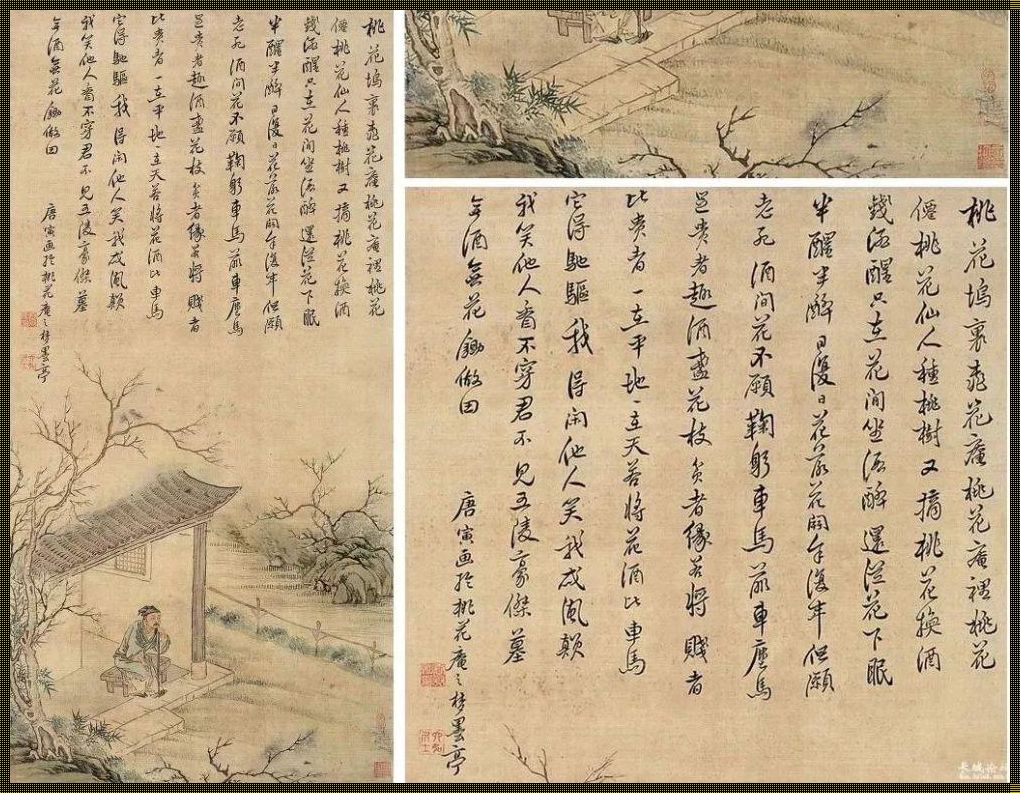 桃花塢裏桃花庵桃花庵裡桃花
僊桃花仙人種桃樹又摘桃花換酒
錢酒醒只在花間坐酒醉還從花下眠
半醒半醉日復日花落花開年復年但願
老死酒間花不願鞠躬車馬前車塵馬
足貴者趣酒盞花枝貧者緣若將賤者
比貴者一在平地一在天若將花酒比車馬
它得馳驅我得閑他人笑我成風顛
我笑他人看不穿君不見五陵豪傑墓
無酒無花鋤做田
唐寅画於桃花庵之夢墨亭
桃花塢裏桃花庵桃花庵裡桃花
僊桃花仙人種桃樹又摘桃花換酒
錢酒醒只在花間坐酒醉還從花下眠
半醒半醉日復日花落花開年復年但願
老死酒間花不願鞠躬車馬前車塵馬
足貴者趣酒盞花枝貧者緣若將賤者
比貴者一在平地一在天若將花酒比車馬
它得馳驅我得閑他人笑我成風顛
我笑他人看不穿君不見五陵豪傑墓
無酒無花鋤做田
唐寅画於桃花庵之夢墨亭
长城论